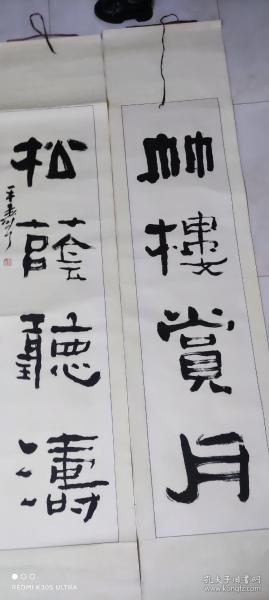 竹樓賞月
松蔭聽濤
REDMI K30S ULTRA
孔夫子旧书网